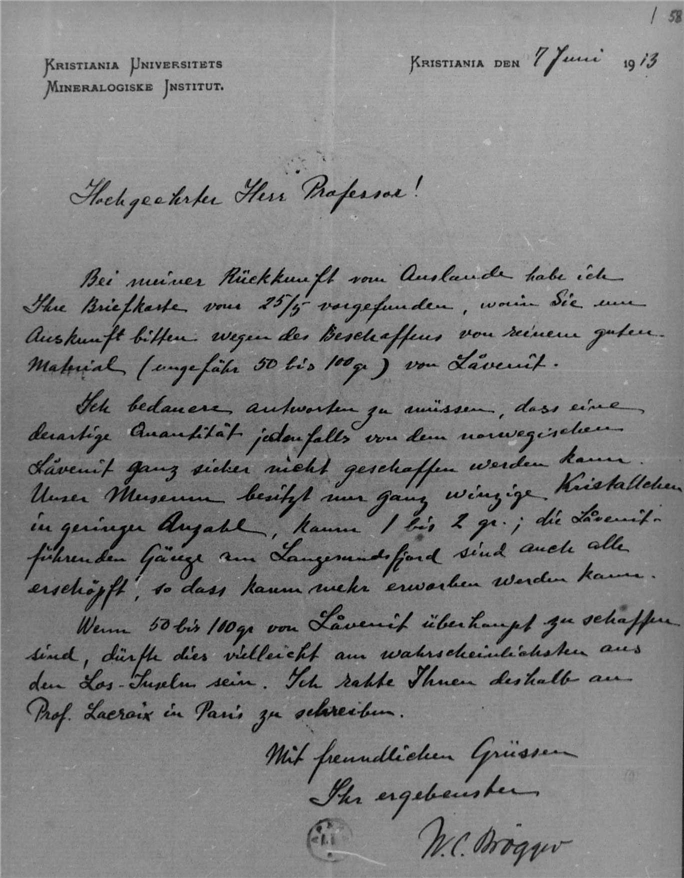 1 58
Kristiania Universitets
Mineralogiske Institut.
Kristiania den 7 Juni 1913
Hochgeehrter Herr Professor!
Bei meiner Rückkunft vom Auslande habe ich
Ihre Briefkarte vom 25/5 vorgefunden, worin Sie um
Auskunft bitten wegen des Beschaffens von reinem guten
Material (ungefähr 50 bis 100 gr) von Låvenit.
Ich bedauere antworten zu müssen, dass eine
derartige Quantität jedenfalls von dem norwegischen
Låvenit ganz sicher nicht geschaffen werden kann.
Unser Museum besitzt nur ganz winzige Kristallchen
in geringer Anzahl, kaum 1 bis 2 gr.; die Låvenit-
führenden Gänge am Langesundsfjord sind auch alle
erschöpft, so dass kaum mehr erworben werden kann.
Wenn 50 bis 100 gr von Låvenit überhaupt zu schaffen
sind, dürfte dies vielleicht am wahrscheinlichsten aus
den Los-Inseln sein. Ich rathe Ihnen deshalb an
Prof. Lacroix in Paris zu schreiben.
Mit freundlichen Grüssen
Ihr ergebenster
W. C. Brögger